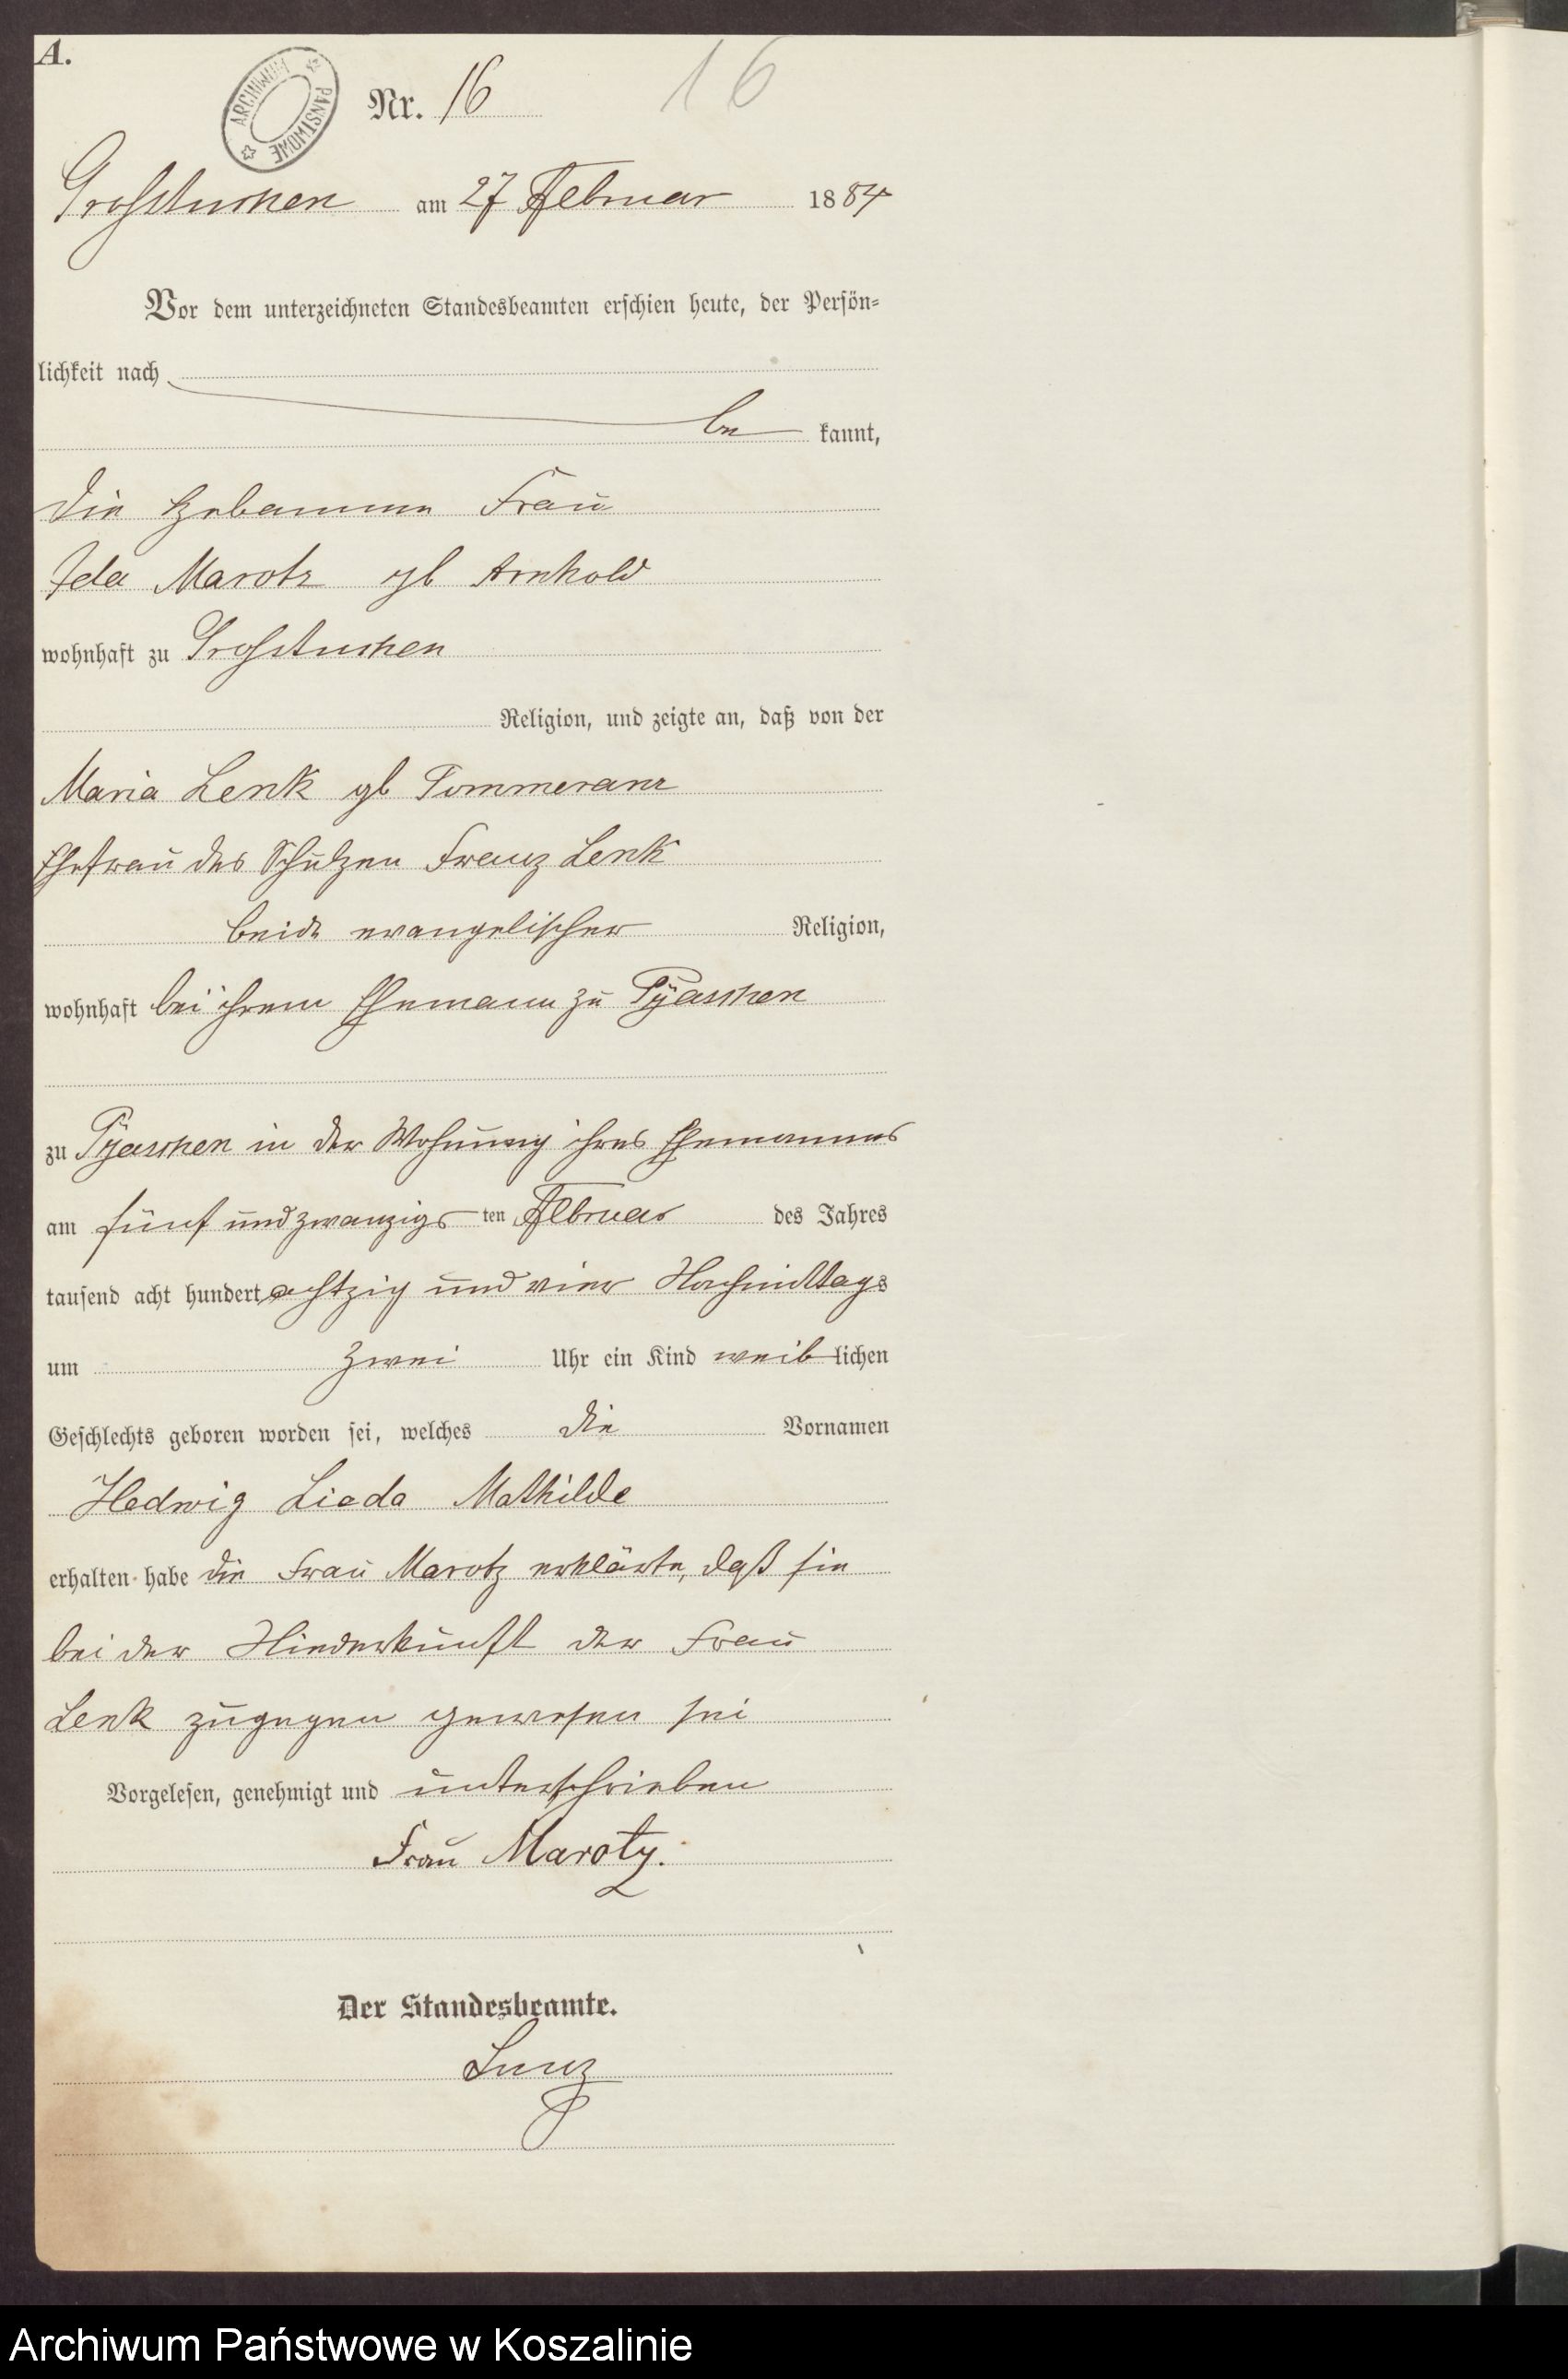 A.
ARCHIWUM PAŃSTWOWE
Nr. 16
16
Grosstuchen am 27 Februar 1884
Vor dem unterzeichneten Standesbeamten erschien heute, der Persön-
lichkeit nach
be kannt,
die Hebamme Frau
Ida Marotz gb Arnhold
wohnhaft zu Grosstuchen
Religion, und zeigte an, daß von der
Maria Lenk gb Pommeranz
Ehefrau des Schulzen Franz Lenk
beide evangelischer Religion,
wohnhaft bei ihrem Ehemann zu Pyaschen
zu Pyaschen in der Wohnung ihres Ehemannes
am fünf und zwanzigs ten Februar des Jahres
tausend acht hundert achtzig und vier Nachmittags
um zwei Uhr ein Kind weib lichen
Geschlechts geboren worden sei, welches die Vornamen
Hedwig Lieda Mathilde
erhalten habe die Frau Marotz erklärte, daß sie
bei der Niederkunft der Frau
Lenk zugegen gewesen sei
Vorgelesen, genehmigt und unterschrieben
Frau Marotz.
Der Standesbeamte.
Archiwum Państwowe w Koszalinie